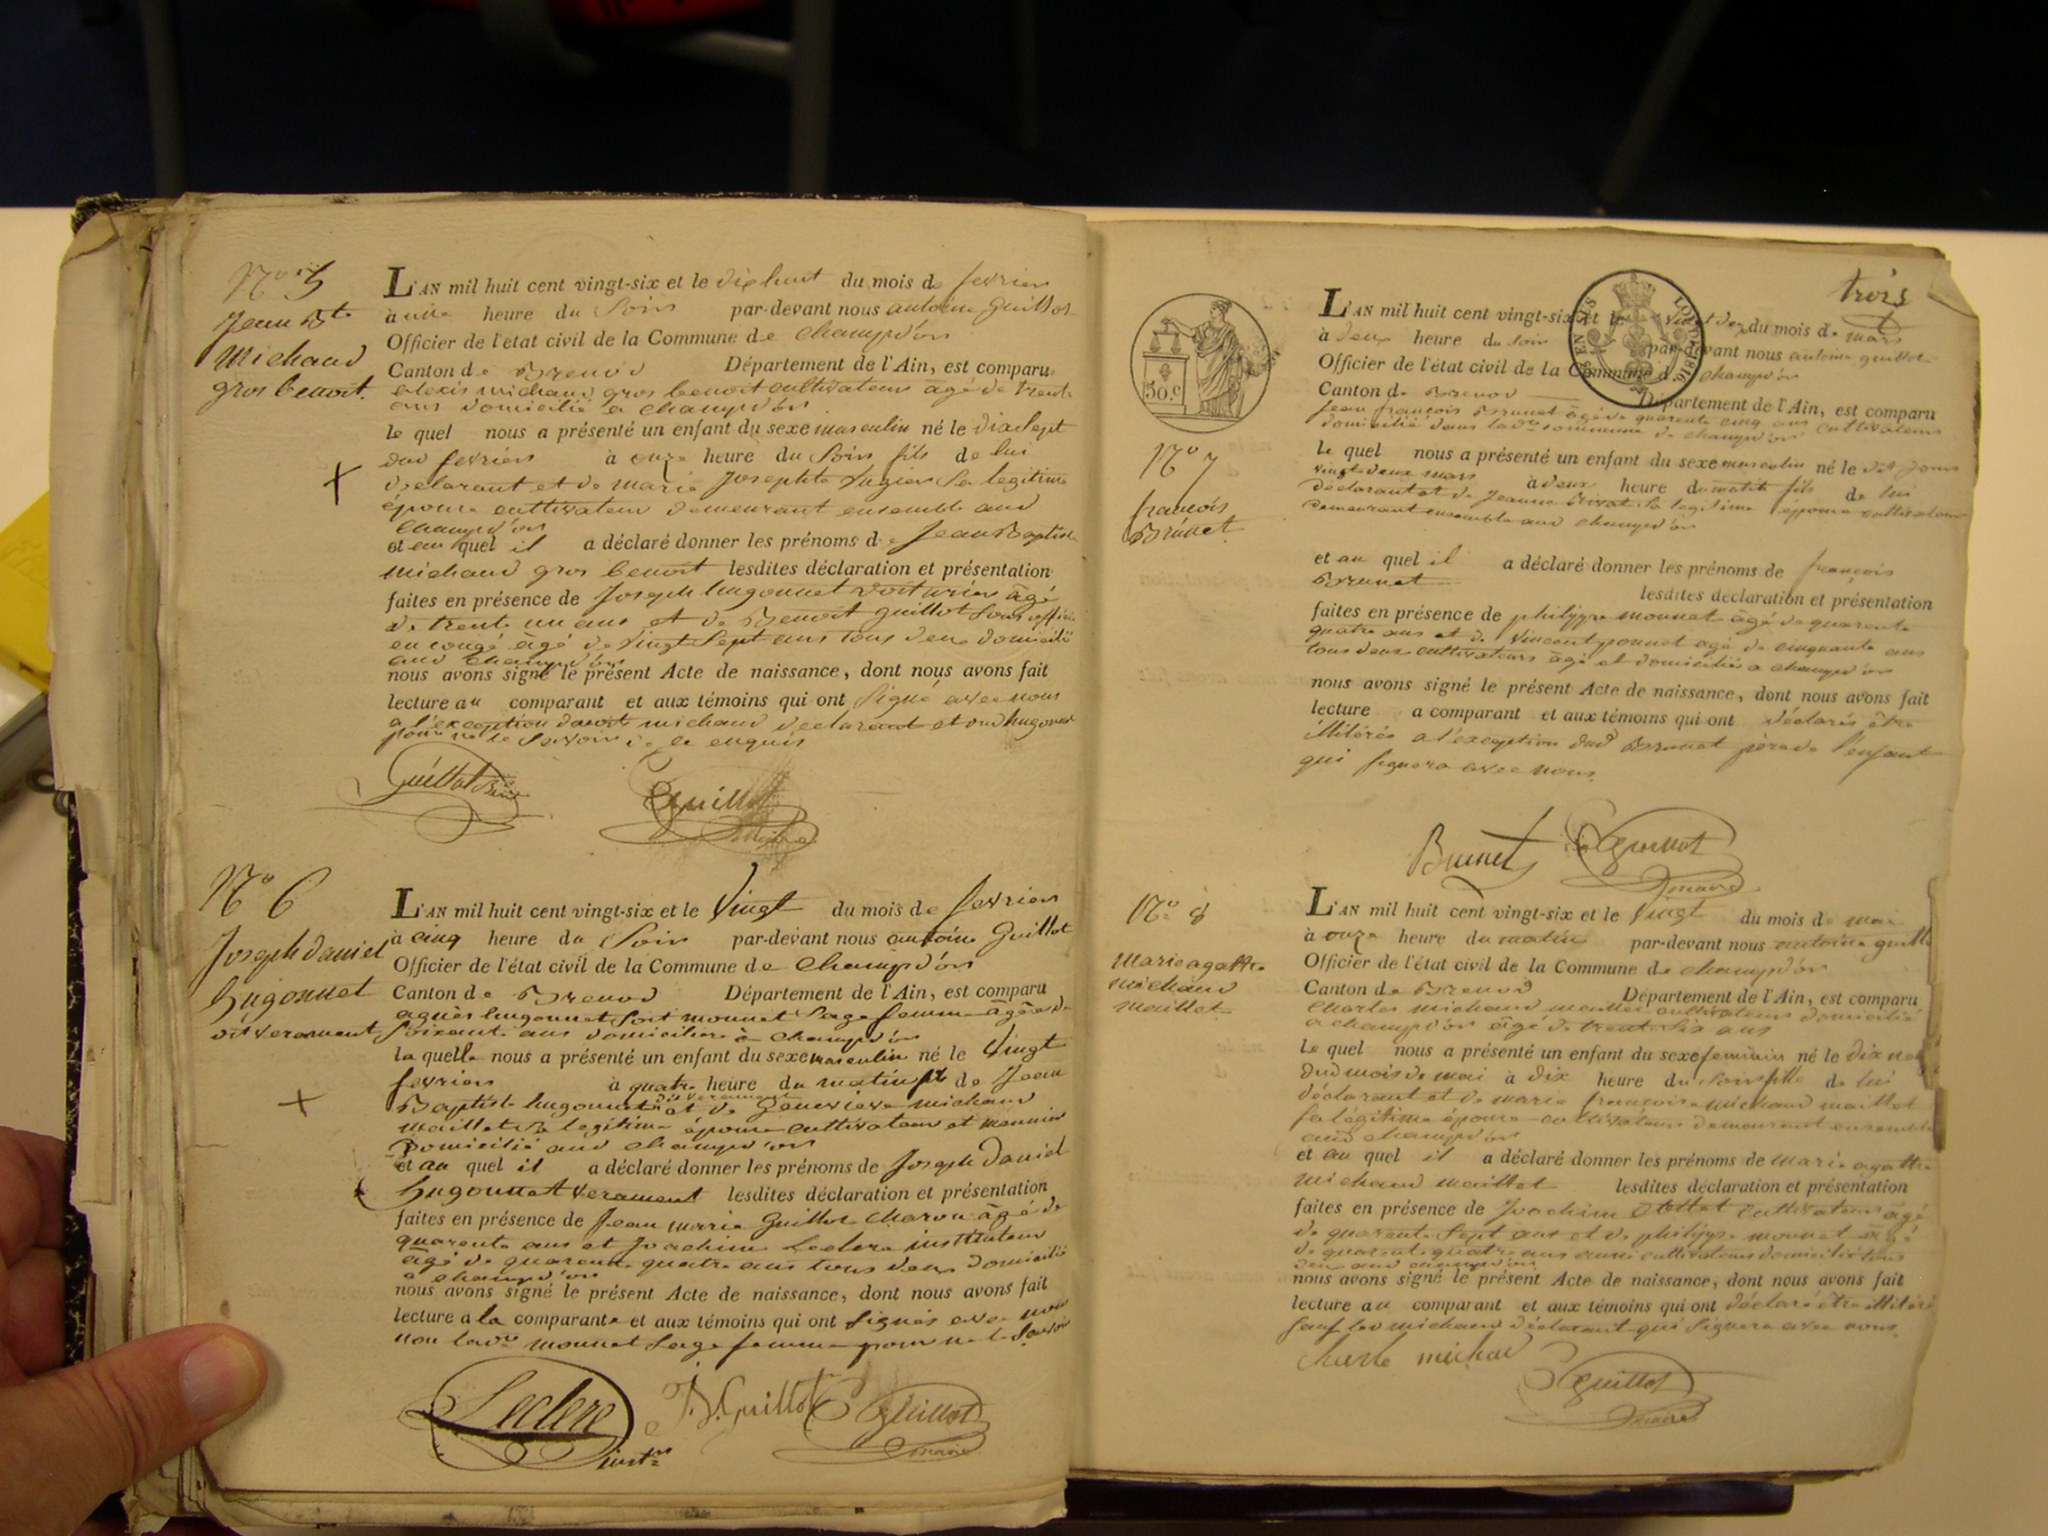 N° 5
Jean Bte
Michaud
gros benoit.
L'AN mil huit cent vingt-six et le dix huit du mois de fevrier
à une heure du Soir par-devant nous antoine Guillot
Officier de l'etat civil de la Commune de Champd'or
Canton de Brenod Département de l'Ain, est comparu
alexis michaud gros benoit cultivateur agé de trente
ans domicilié a Champd'or
le quel nous a présenté un enfant du sexe masculin né le dix Sept
dud fevrier à onze heure du Soir fils de lui
declarant et de marie Josephte Sa legitime
épouse cultivateur demeurant ensemble aud
Champd'or
et au quel il a déclaré donner les prénoms de Jean Baptiste
Michaud gros benoit lesdites déclaration et présentation
faites en présence de Joseph hugonnet voiturier âgé
de trente un ans et de Benoit Guillot Sous officier
en congé âgé de vingt Sept ans tous deux domicilié
aud Champd'or
nous avons signé le présent Acte de naissance, dont nous avons fait
lecture au comparant et aux témoins qui ont Signé avec nous
a l'exception michaud declarant et dud hugonnet
pour ne le Savoir de ce enquis
Guillot
Guillot
N° 6
Joseph daniel
hugonnet
dit verament
L'AN mil huit cent vingt-six et le Vingt du mois de fevrier
à cinq heure du Soir par-devant nous antoine Guillot
Officier de l'état civil de la Commune de Champd'or
Canton de Brenod Département de l'Ain, est comparu
agnès hugonnet monnet Sage femme âgée de
Soixante ans domiciliée à Champd'or
la quelle nous a présenté un enfant du sexe masculin né le Vingt
fevrier à quatre heure du matin de Jean
Baptiste hugonnet dit verament et de Genevieve michaud
maillet Sa legitime épouse cultivateur et meunier
Domicilié aud Champd'or
et au quel il a déclaré donner les prénoms de Joseph Daniel
hugonnet verament lesdites déclaration et présentation
faites en présence de Jean marie Guillot Charon âgé de
quarente ans et Joachim Leclerc instituteur
âgé de quarente quatre ans tous deux domicilié
a Champd'or
nous avons signé le présent Acte de naissance, dont nous avons fait
lecture a la comparante et aux témoins qui ont Signés avec nous
non lad.e monnet Sage femme pour ne le Savoir
Leclerc
instr
J. M. Guillot
Guillot
maire
trois
50 c
N° 7
francois
Brunet.
L'AN mil huit cent vingt-six et le vingt deux du mois de mars
à deux heure du soir par-devant nous antoine guillot
Officier de l'état civil de la Commune de Champd'or
Canton de Brenod Département de l'Ain, est comparu
Jean françois Brunet âgé de quarente cinq ans cultivateur
domicilié dans lad.e commune de champd'or
le quel nous a présenté un enfant du sexe masculin né le dit jour
vingt deux mars à deux heure du matin fils de lui
déclarant et de Jeanne Sa legitime épouse cultivateur
demeurant ensemble aud champd'or
et au quel il a déclaré donner les prénoms de françois
Brunet lesdites déclaration et présentation
faites en présence de philippe monnet âgé de quarente
quatre ans et de Vincent ponnet agé de cinquante ans
tous deux cultivateurs âgé et domiciliés a champd'or
nous avons signé le présent Acte de naissance, dont nous avons fait
lecture a comparant et aux témoins qui ont déclarés être
illitérés a l'exception dud Brunet père de l'enfant
qui Signera avec nous.
Brunet
Guillot
maire
N° 8
Marie agathe
michaud
maillet
L'AN mil huit cent vingt-six et le Vingt du mois de mai
à onze heure du matin par-devant nous antoine guillot
Officier de l'état civil de la Commune de Champd'or
Canton de Brenod Département de l'Ain, est comparu
Charles michaud maillet cultivateur domicilié
a champd'or âgé de trente Six ans
le quel nous a présenté un enfant du sexe feminin né le dix neuf
dud mois de mai à dix heure du Soir fille de lui
déclarant et de marie francoise michaud maillet
Sa légitime épouse cultivateurs demeurant ensemble
aud champd'or
et au quel il a déclaré donner les prénoms de Marie agathe
Michaud maillet lesdites déclaration et présentation
faites en présence de Joachim cultivateur âgé
de quarente Sept ans et de philippe monnet âgé
de quarente quatre ans aussi cultivateur domiciliés tous
deux aud champd'or
nous avons signé le présent Acte de naissance, dont nous avons fait
lecture au comparant et aux témoins qui ont déclaré être illitéré
Sauf led michaud déclarant qui Signera avec nous
Charle michaud
Guillot
maire